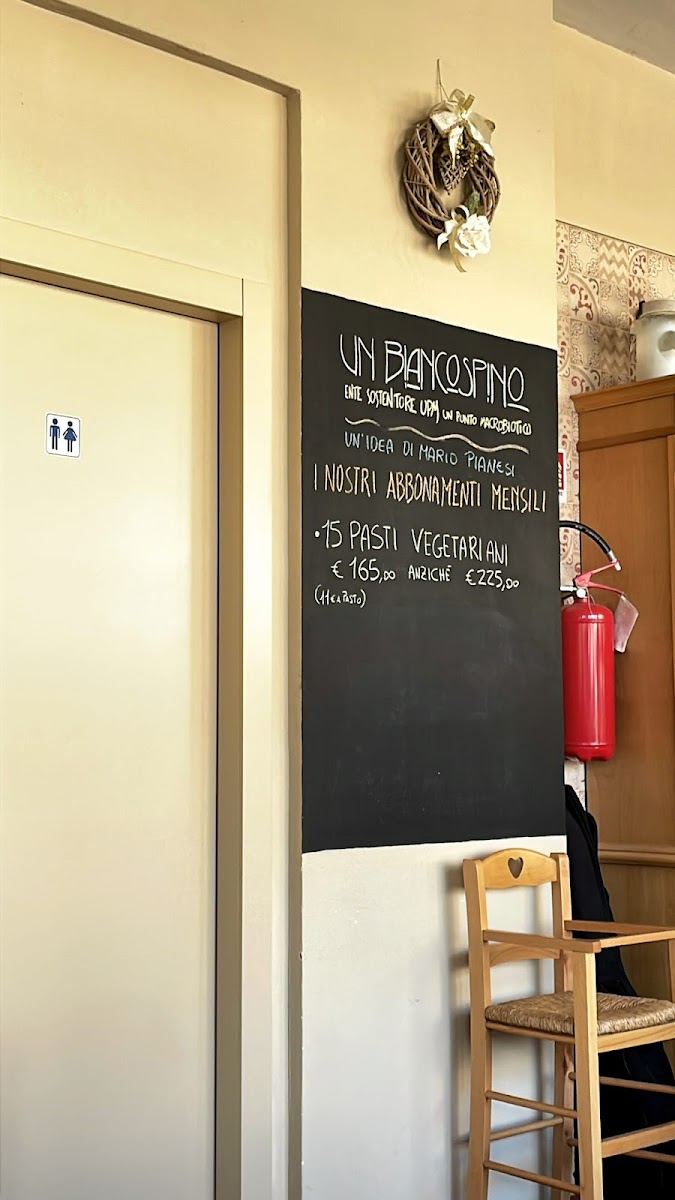 UN BIANCOSPINO
ENTE SOSTENITORE UPM UN PUNTO MACROBIOTICO
UN'IDEA DI MARIO PIANESI
I NOSTRI ABBONAMENTI MENSILI
• 15 PASTI VEGETARIANI
€ 165,00 ANZICHÉ € 225,00
(11 € A PASTO)